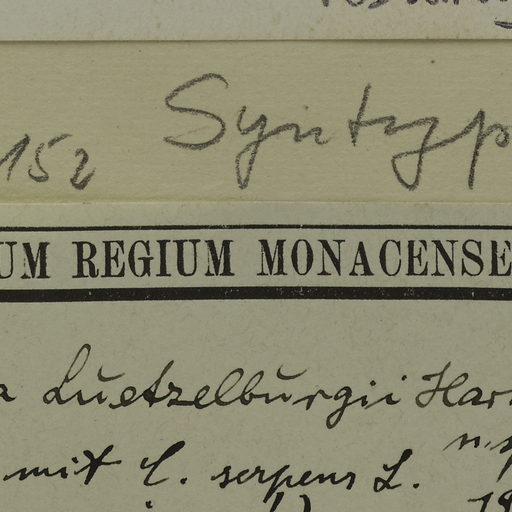 152 Syntyp
UM REGIUM MONACENSE
a Luetzelburgii Har
n.sp
mit C. serpens L.